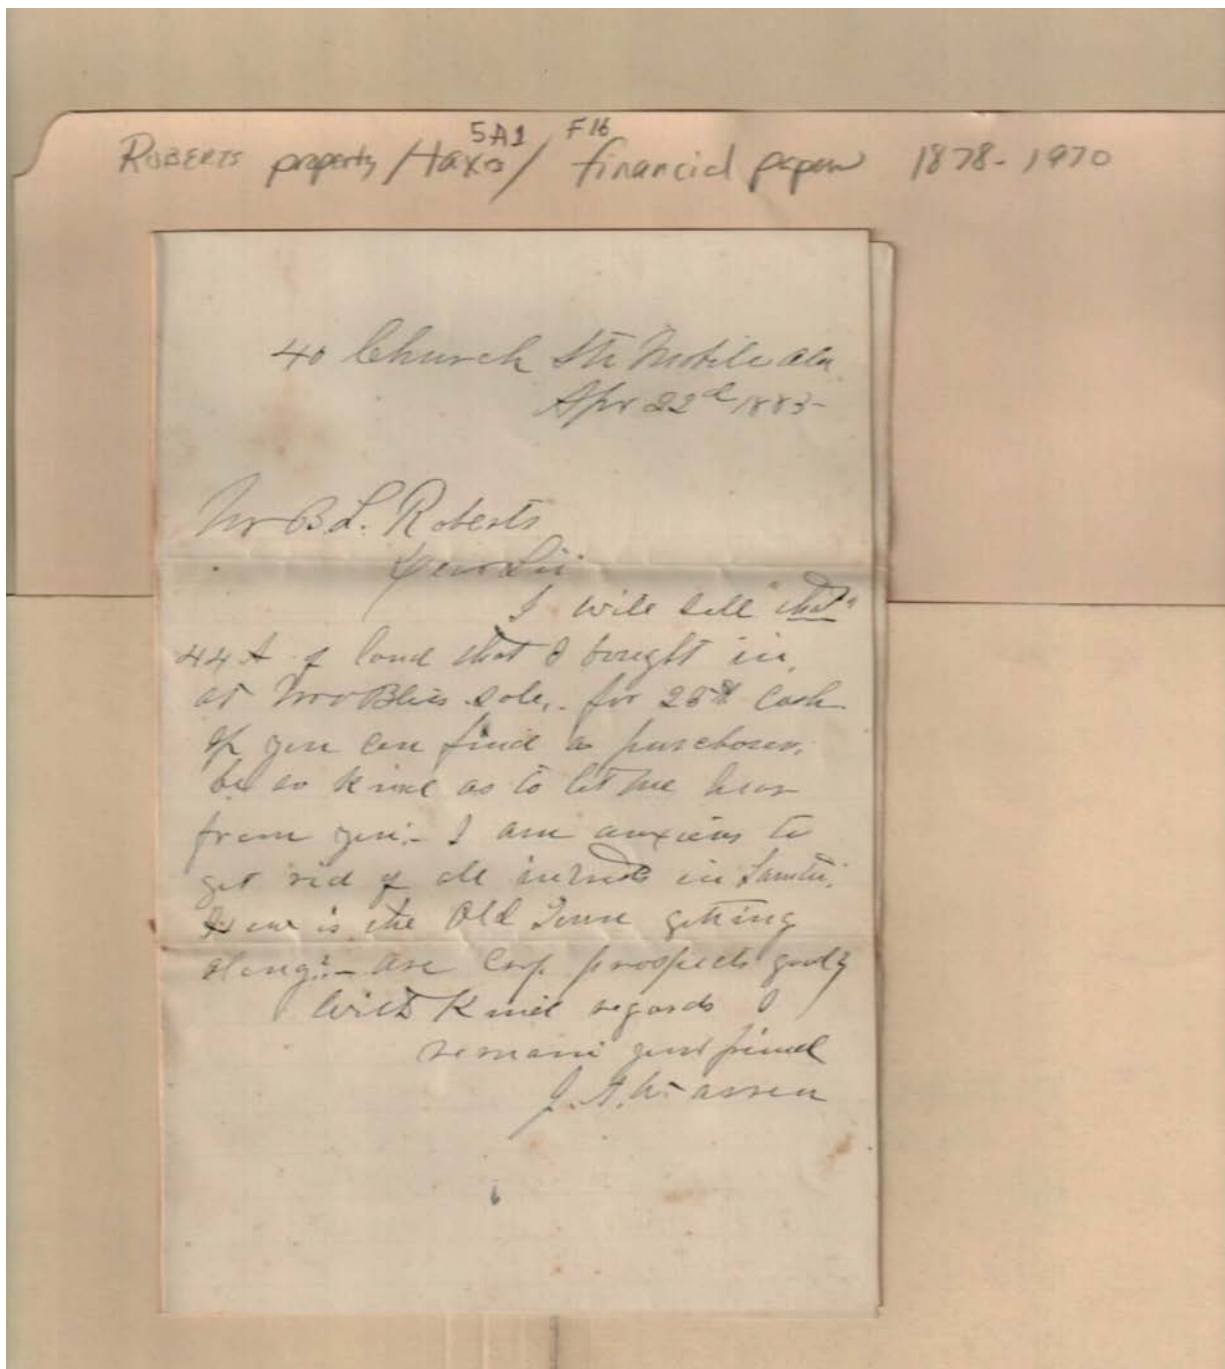 5A1 F16
ROBERTS property/taxes/ financial papers 1878-1970
40 Church Str Mobile Ala
Apr 22d 1883-
Mr B.L. Roberts
Dear Sir
I will sell "that"
44 A of land that I bought in,
at Mrs Blis sale,. for 25$ Cash
If you can find a purchaser,
be so kind as to let me hear
from you.- I am anxious to
get rid of all interest in
How is the Old Town getting
along?- are Crop prospects good?
With Kind regards I
remain your friend
J. A. Warren